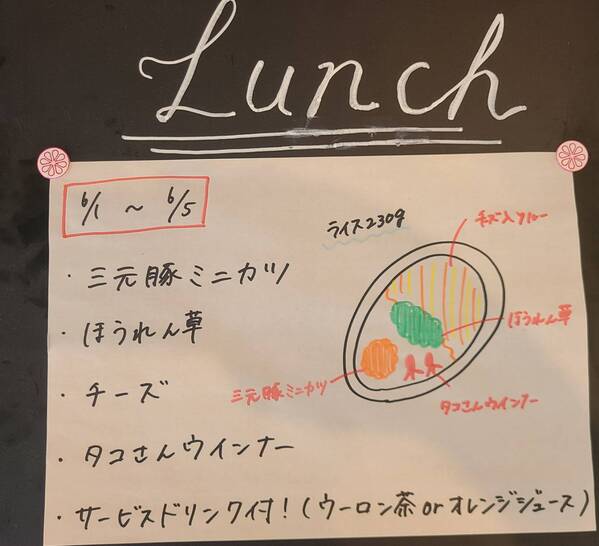 Lunch
6/1 ~ 6/5
ライス230g
チーズ入りカレー
・三元豚ミニカツ
・ほうれん草
ほうれん草
・チーズ
三元豚ミニカツ
タコさんウインナー
・タコさんウインナー
・サービスドリンク付!(ウーロン茶orオレンジジュース)